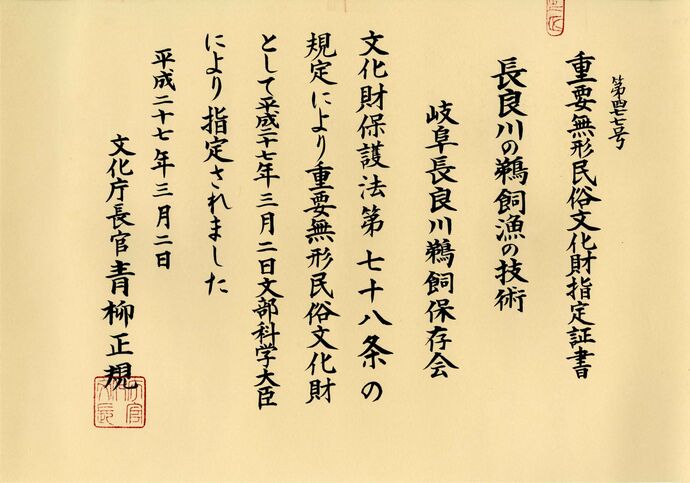 重要無形民俗文化財指定証書
長良川の鵜飼漁の技術
岐阜長良川鵜飼保存会
文化財保護法第七十八条の
規定により重要無形民俗文化財
として平成二十七年三月二日文部科学大臣
により指定されました
平成二十七年三月二日
文化庁長官青柳正規